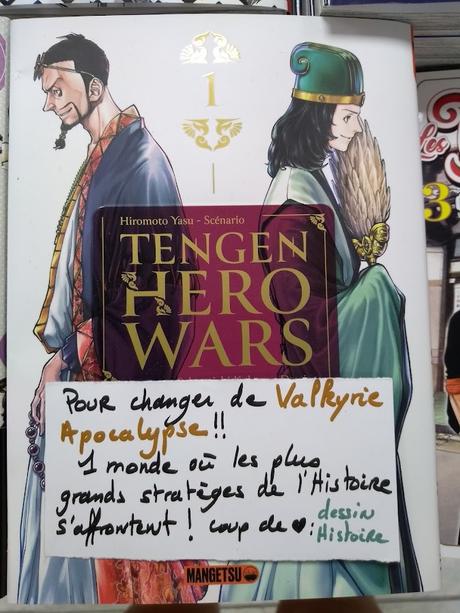 1
Hiromoto Yasu - Scénario
TENGEN
HERO
WARS
Pour changer de Valkyrie
Apocalypse!!
1 monde où les plus
grands stratèges de l'Histoire
s'affrontent! coup de ♥: dessin
Histoire
MANGETSU
Les
3